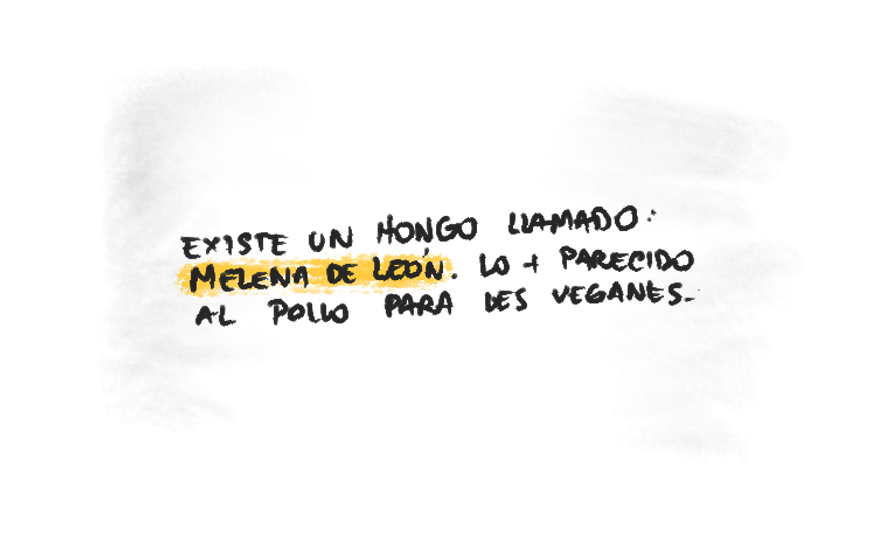 EXISTE UN HONGO LLAMADO:
MELENA DE LEÓN. LO + PARECIDO
AL POLLO PARA LES VEGANES.